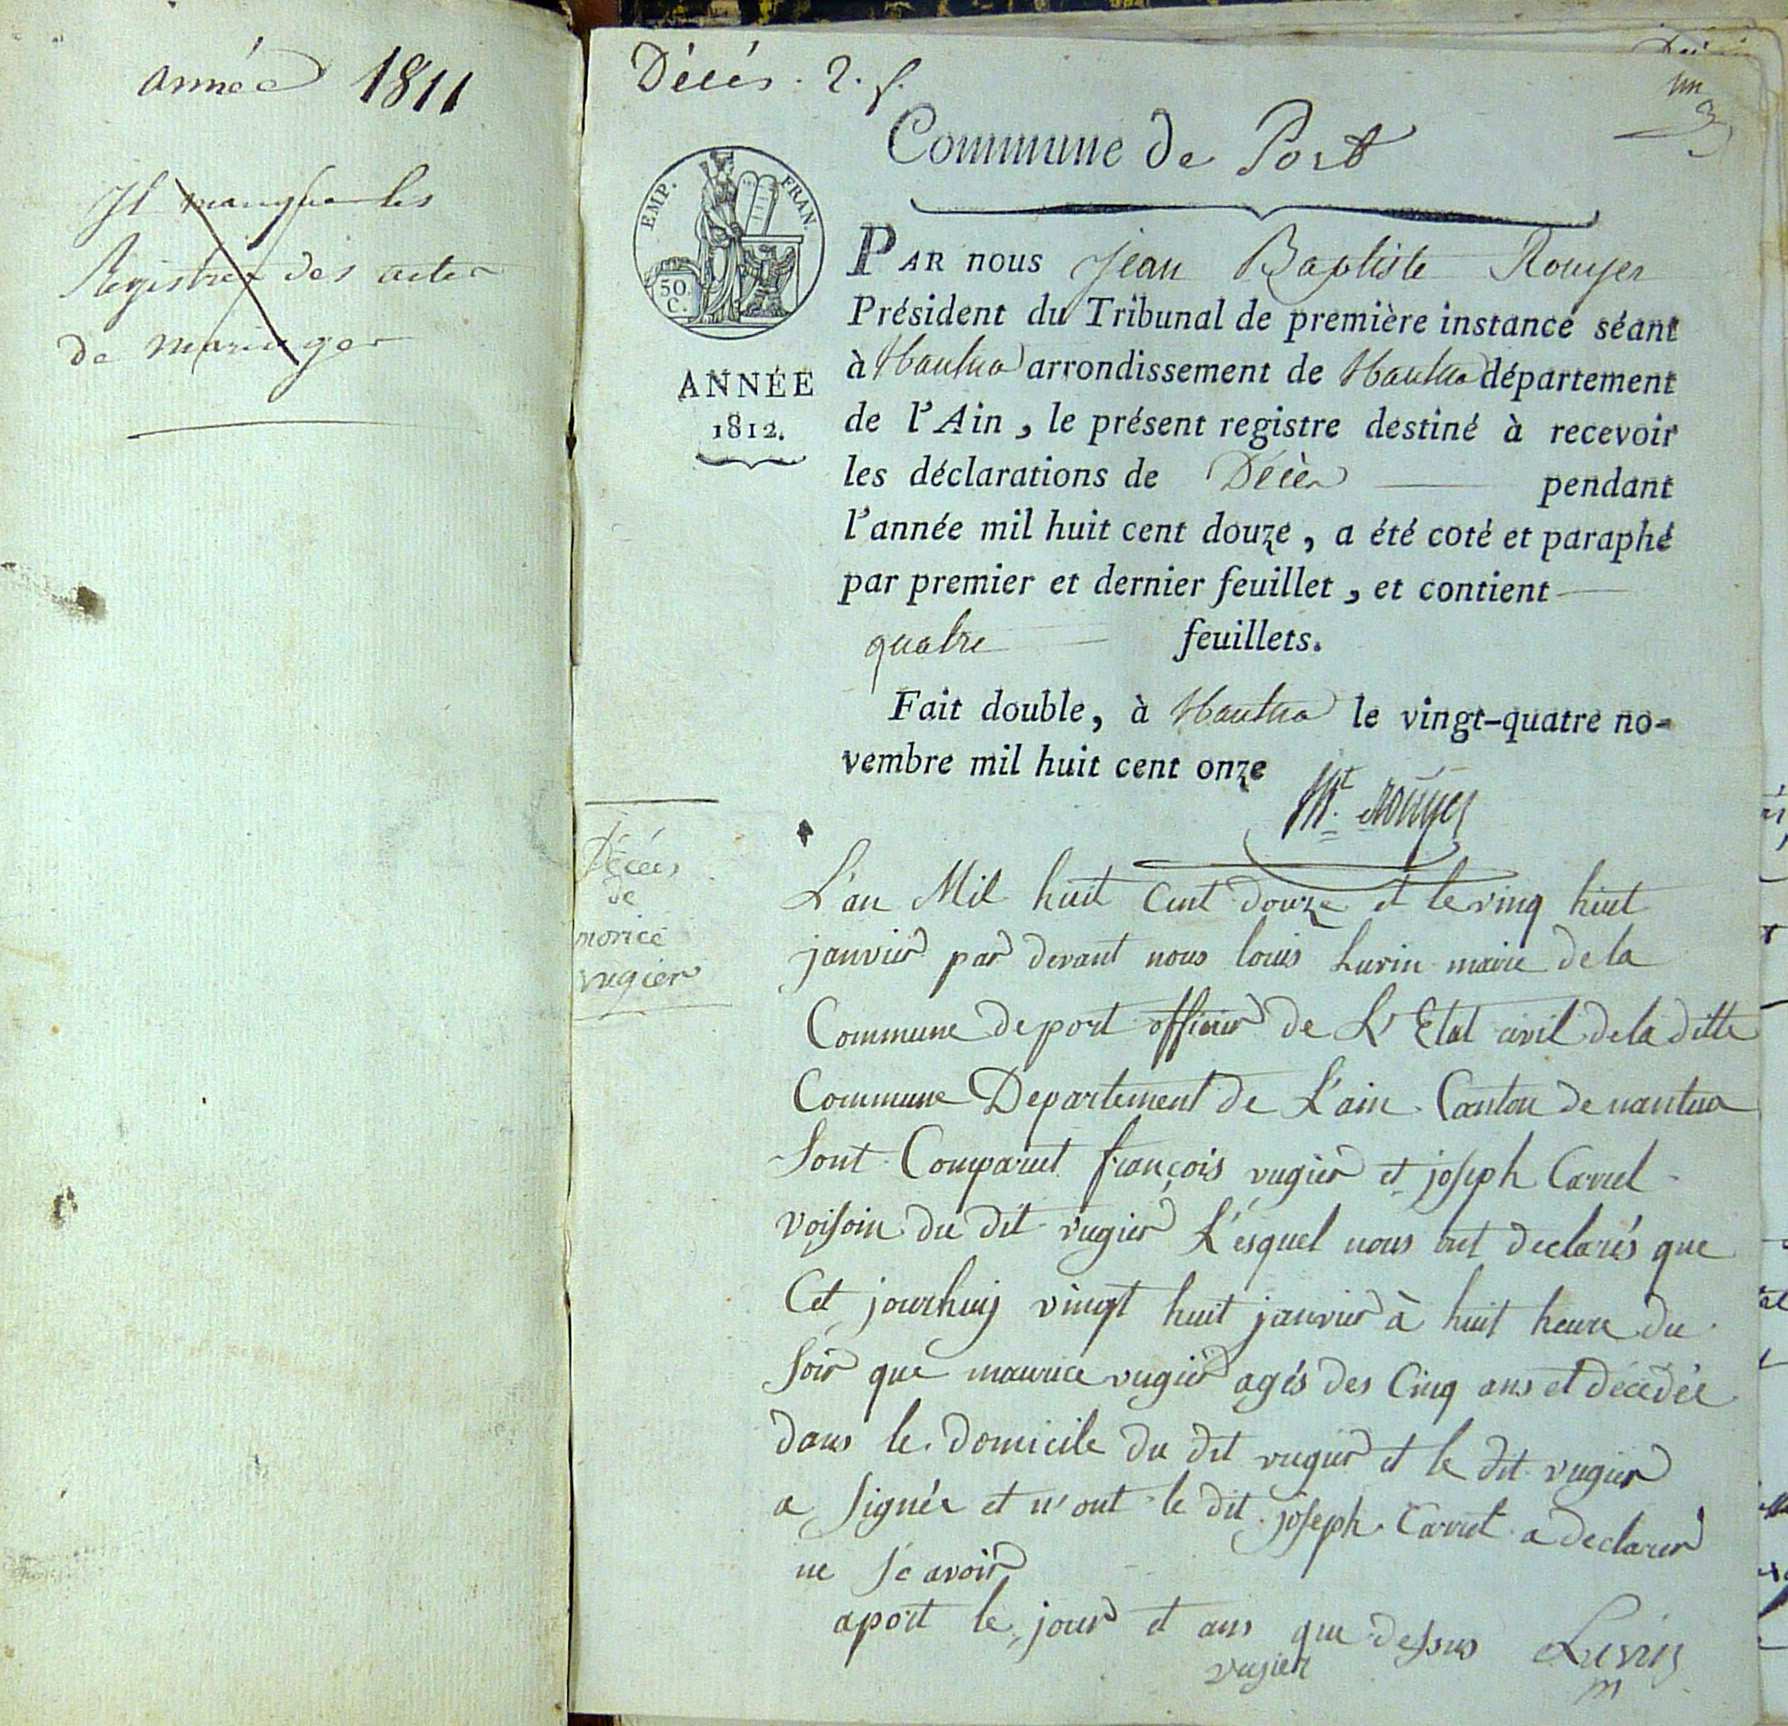 année 1811
Il manque les
Registres des actes
de mariages
Décés. 2. f.
un
Commune de Port
EMP. FRAN.
50.
C.
ANNÉE
1812.
PAR nous jean Baptiste Rouyer
Président du Tribunal de première instance séant
à Nantua arrondissement de Nantua département
de l'Ain, le présent registre destiné à recevoir
les déclarations de Décès pendant
l'année mil huit cent douze, a été coté et paraphé
par premier et dernier feuillet, et contient
quatre feuillets.
Fait double, à Nantua le vingt-quatre no-
vembre mil huit cent onze
Rouyer
Décées
de
morice
vugier
L'an Mil huit Cent douze et le vinq huit
janvier par devant nous louis Luvin maire de la
Commune de port officier de L'Etat civil de la ditte
Commune Departement de L'ain Canton de nantua
Sont Comparut françois vugier et joseph Carrel
voisoin du dit vugier L'ésquel nous ont declarés que
Cet jourhuij vingt huit janvier à huit heure du
soir que maurice vugier agés des Cinq ans et décédée
dans le domicile du dit vugier et le dit vugier
a signée et n'ont le dit joseph Carret a declarer
ne sé avoir
aport le jour et ans que dessus Luvin
vugier m